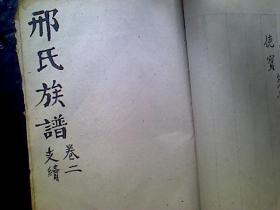 邢氏族譜
卷二
支續
德寶